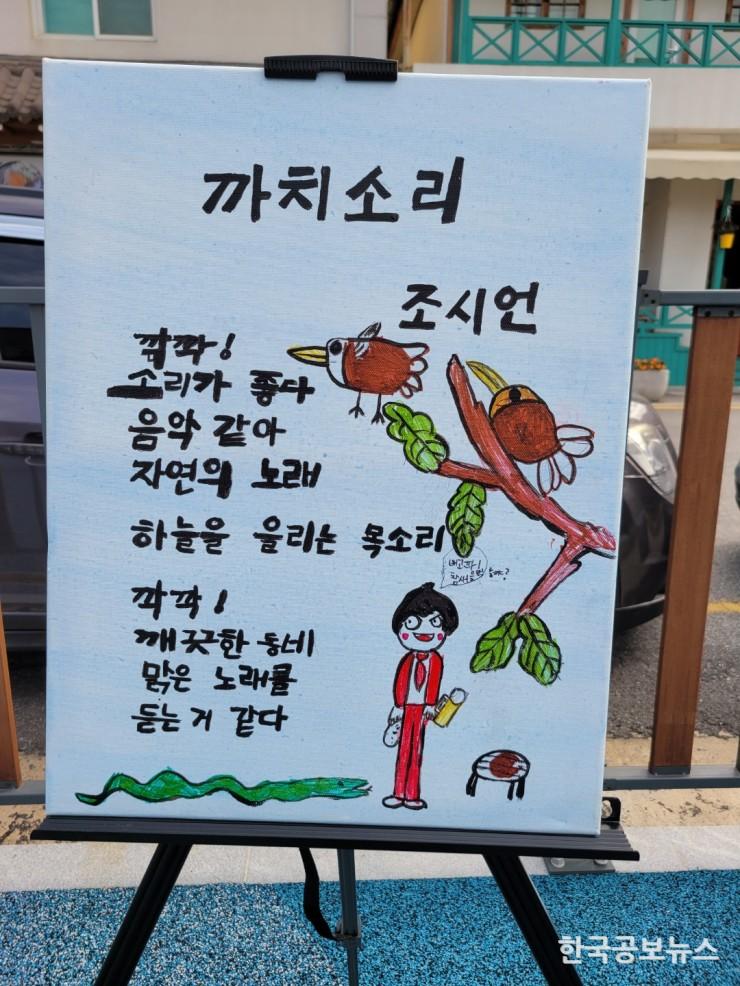 까치소리
조시언
깍깍!
소리가 좋다
음악 같아
자연의 노래
하늘을 울리는 목소리
배고파!
깍깍!
깨끗한 동네
맑은 노래를
듣는거 같다
한국공보뉴스